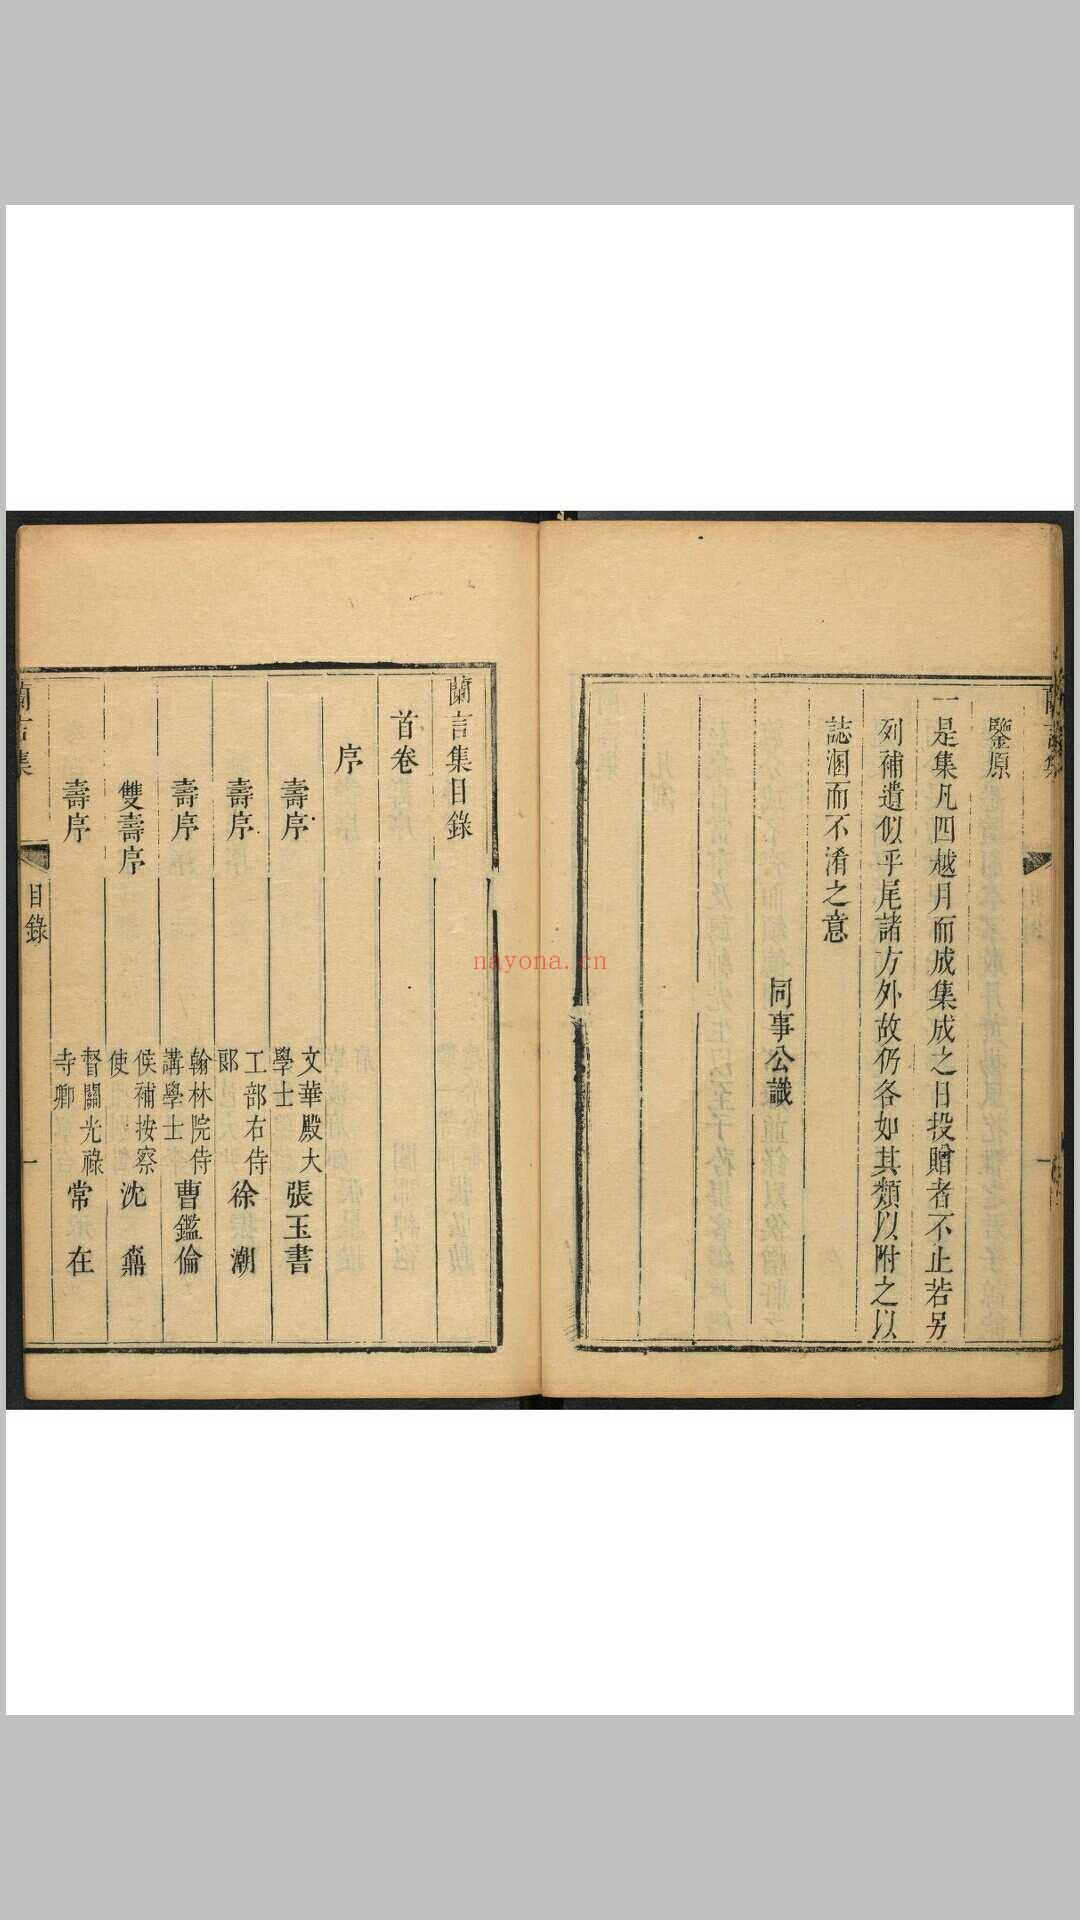 鑒原
一是集凡四越月而成集成之日投贈者不止若另
列補遺似乎尾諸方外故仍各如其類以附之以
誌溷而不淆之意
同事公識
蘭言集目錄
首卷
序
壽序 文華殿大學士 張玉書
壽序 工部右侍郎 徐潮
壽序 翰林院侍講學士 曹鑑倫
雙壽序 候補按察使 沈鼐
壽序 督關光祿寺卿 常在
蘭言集 目錄 一
nayona.cn